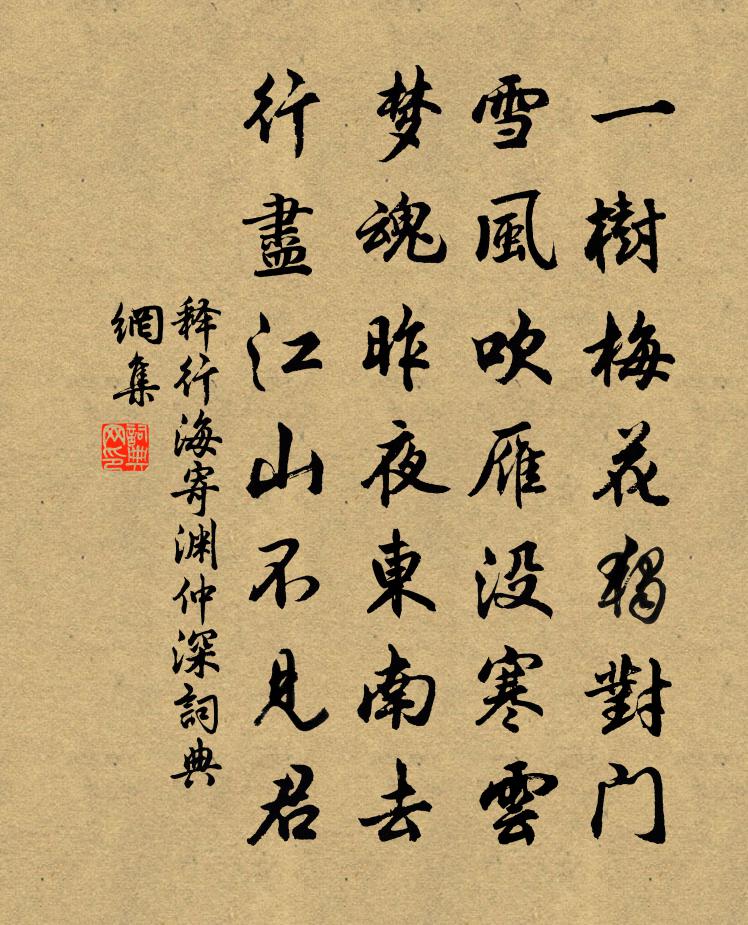 一樹梅花獨對門
雪風吹雁没寒雲
梦魂昨夜東南去
行盡江山不見君
释行海寄渊仲深詞典
網集
詞典
网印